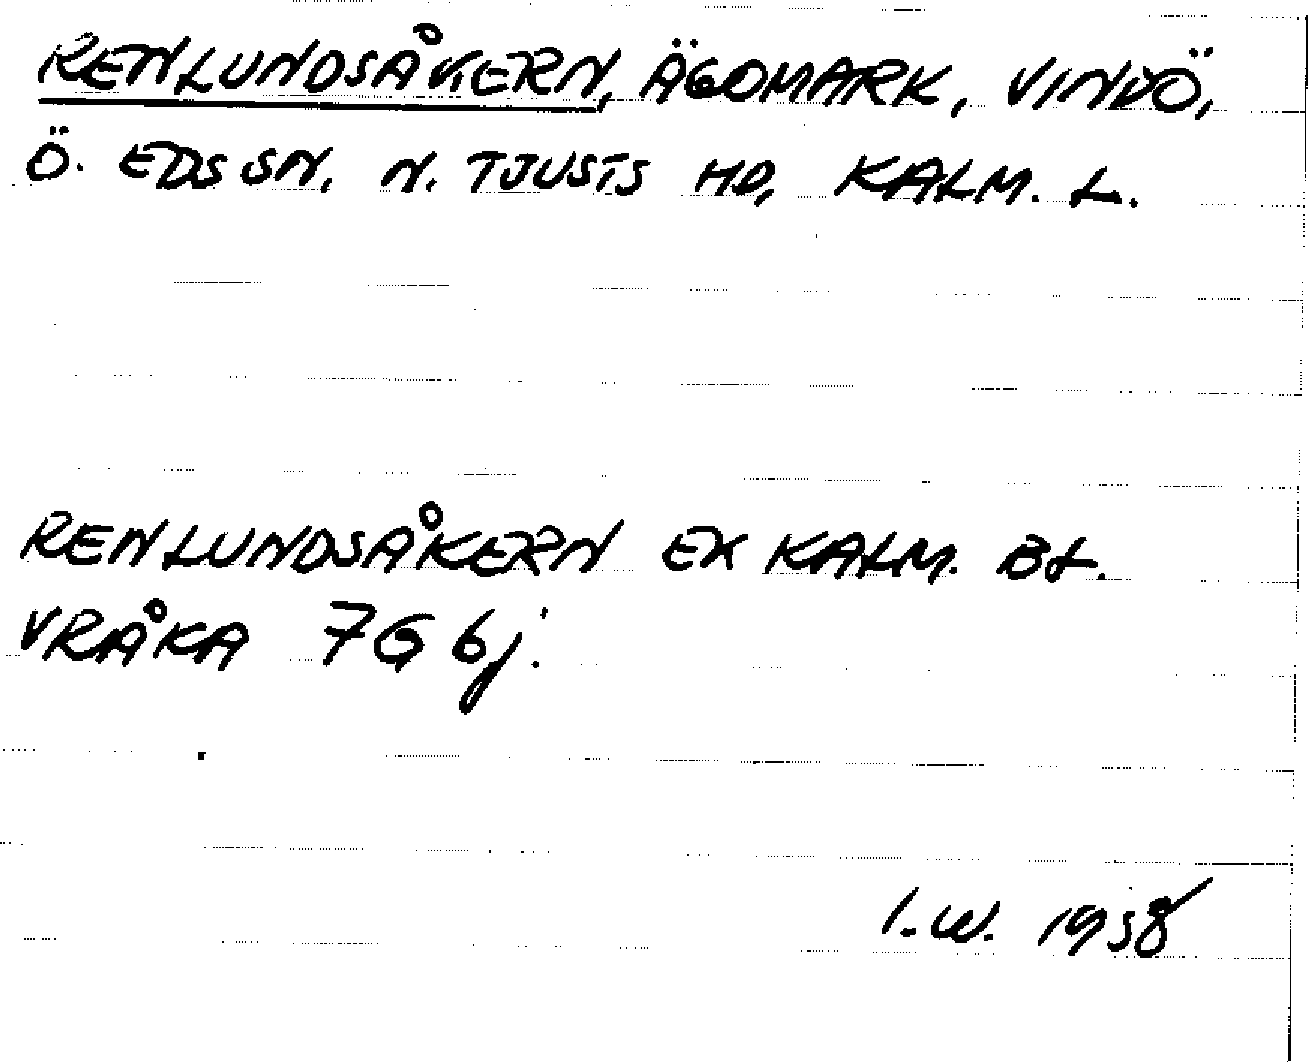 RENLUNDSÅKERN, ÄGOMARK, VINDÖ,
Ö. EDS SN. N. TJUSTS HD, KALM. L.
RENLUNDSÅKERN EK KALM. BL.
VRÅKA 7G 6j.
I.W. 1958